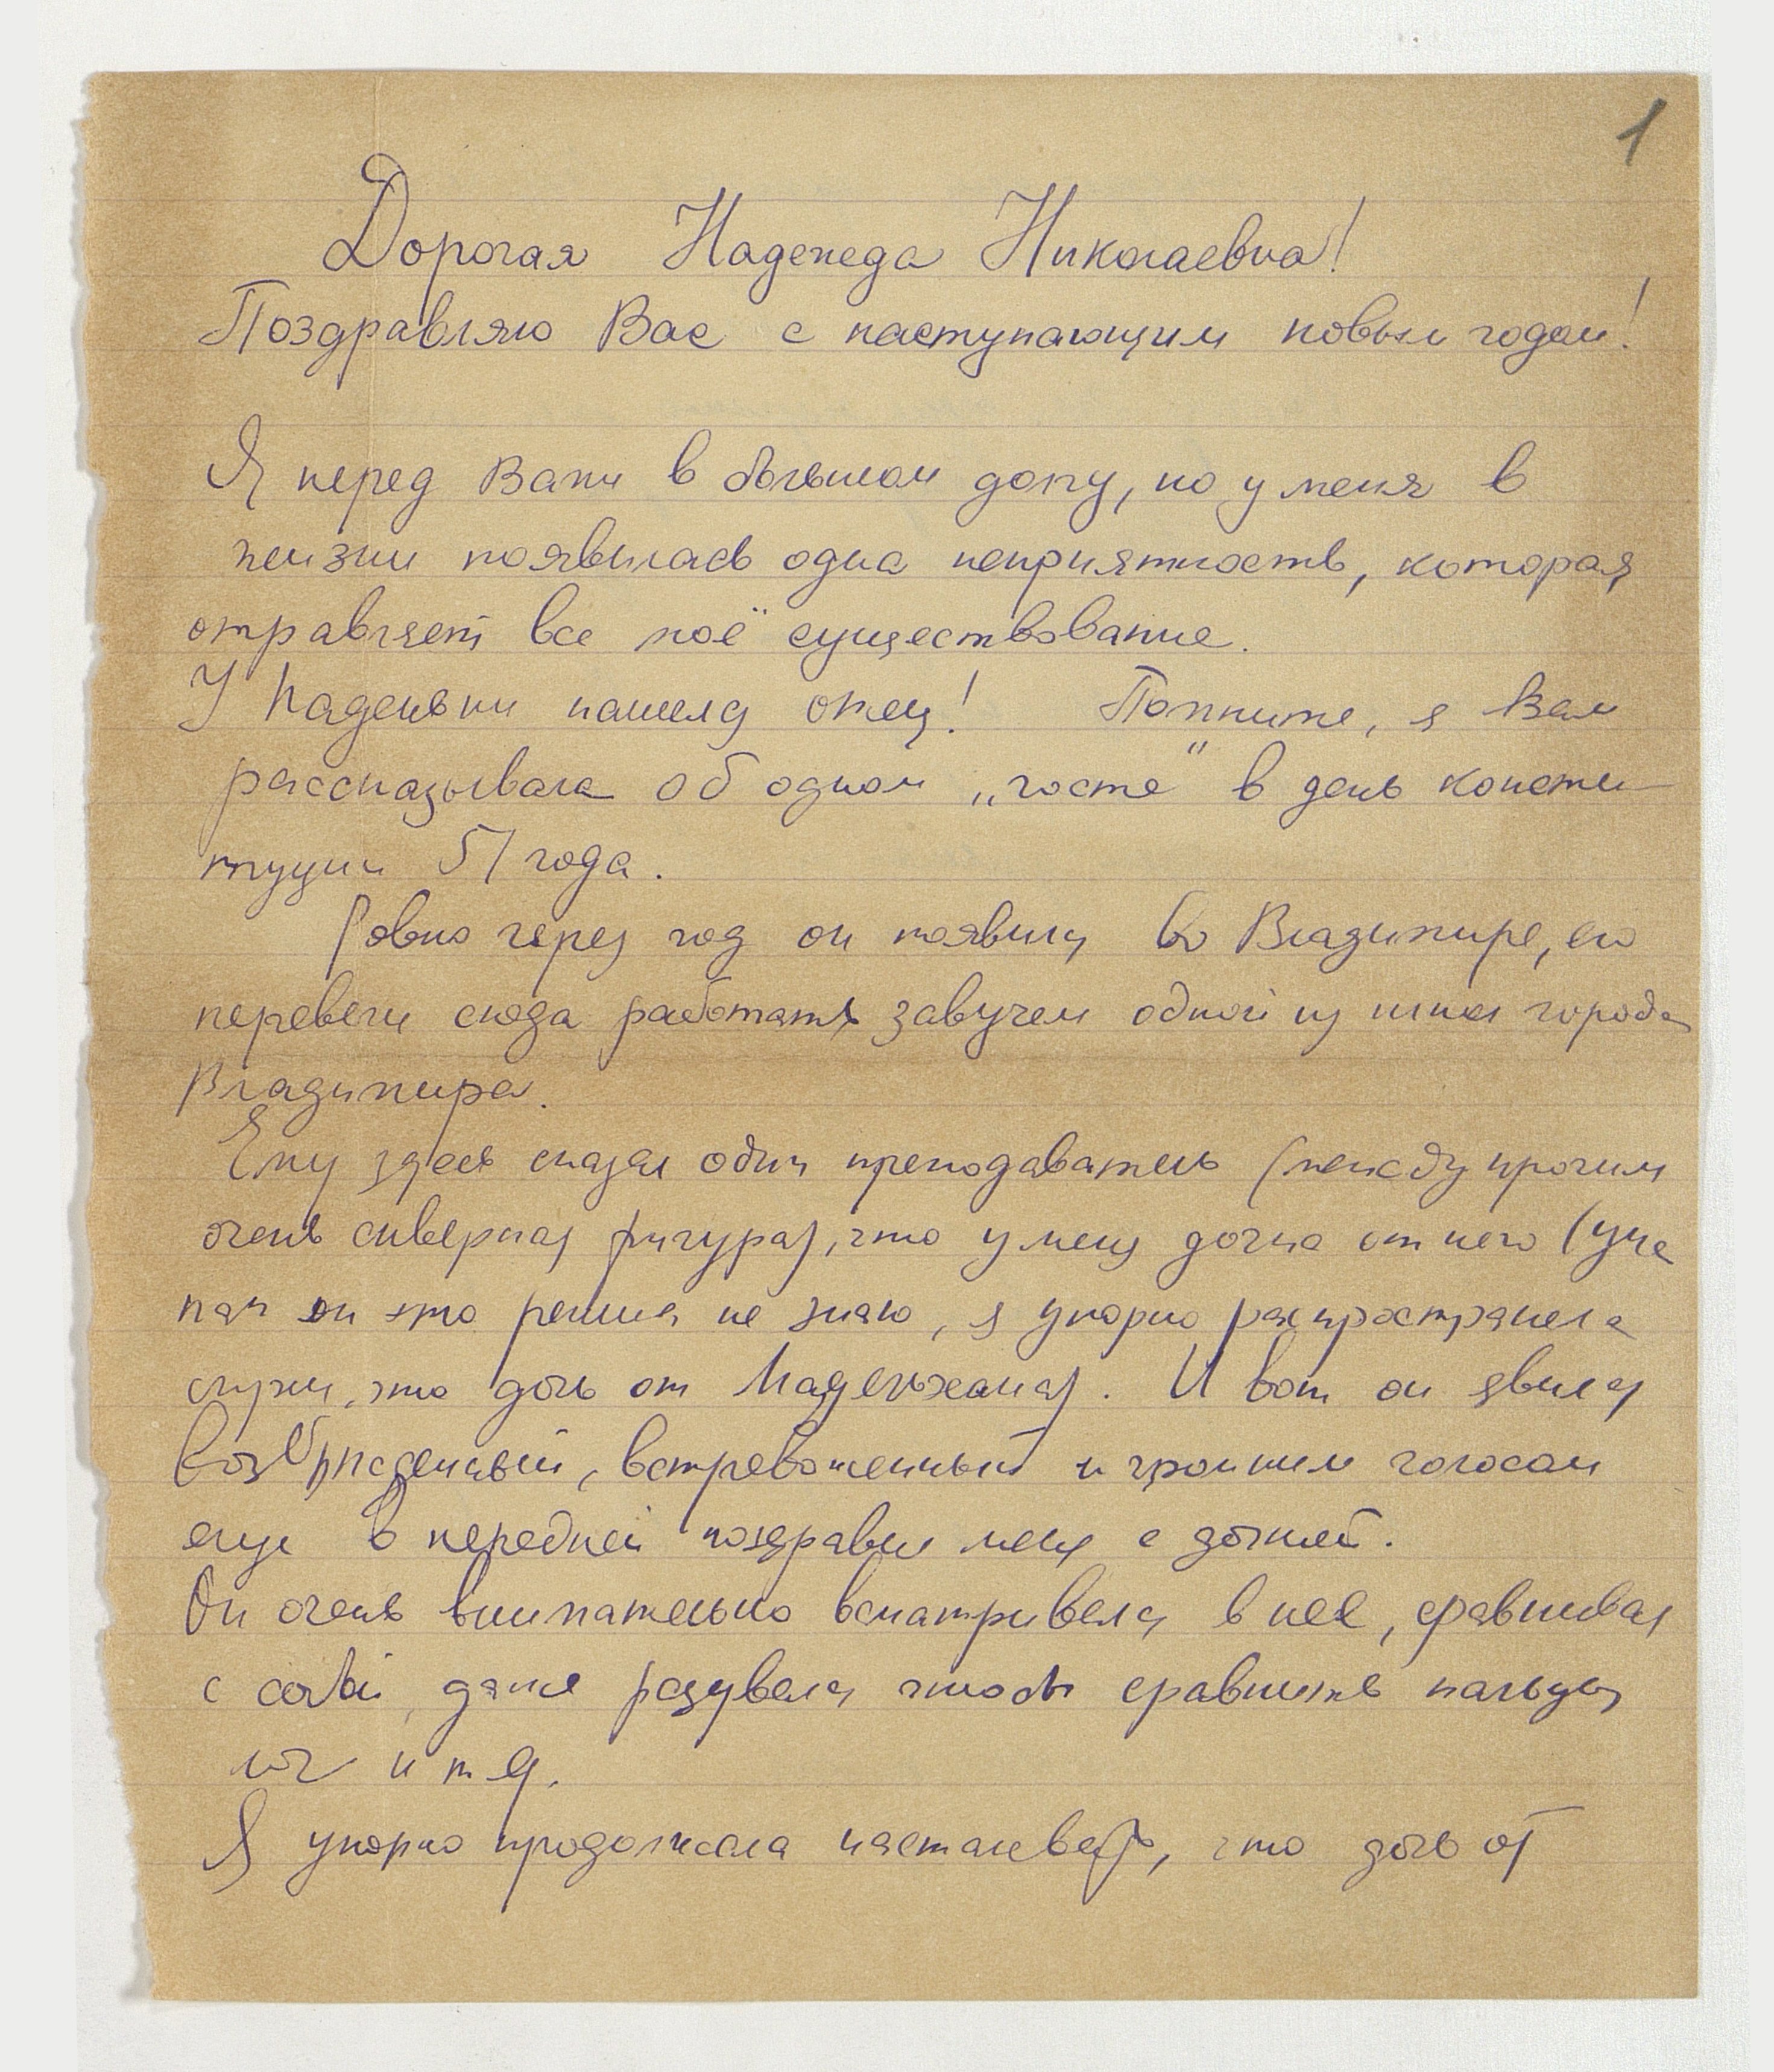 1
Дорогая Надежда Николаевна!
Поздравляю Вас с наступающим новым годом!
Я перед Вами в большом долгу, но у меня в
жизни появилась одна неприятность, которая
отравляет все моё существование.
У Наденьки нашелся отец! Помните, я Вам
рассказывала об одном „госте" в день консти-
туции 51 года.
Ровно через год он появился во Владимире, его
перевели сюда работать завучем одной из школ города
Владимира.
Ему здесь сказал один преподаватель (между прочим
очень скверная фигура), что у меня дочка от него (уже
как он это решил не знаю, я упорно распространяла
слухи, что дочь от Мадельхана). И вот он явился
возбужденный, встревоженный и громким голосом
еще в передней поздравил меня с дочкой.
Он очень внимательно всматривался в неё, сравнивая
с собой, даже разувался чтобы сравнить пальцы
ног и т д.
Я упорно продолжала настаивать, что дочь от